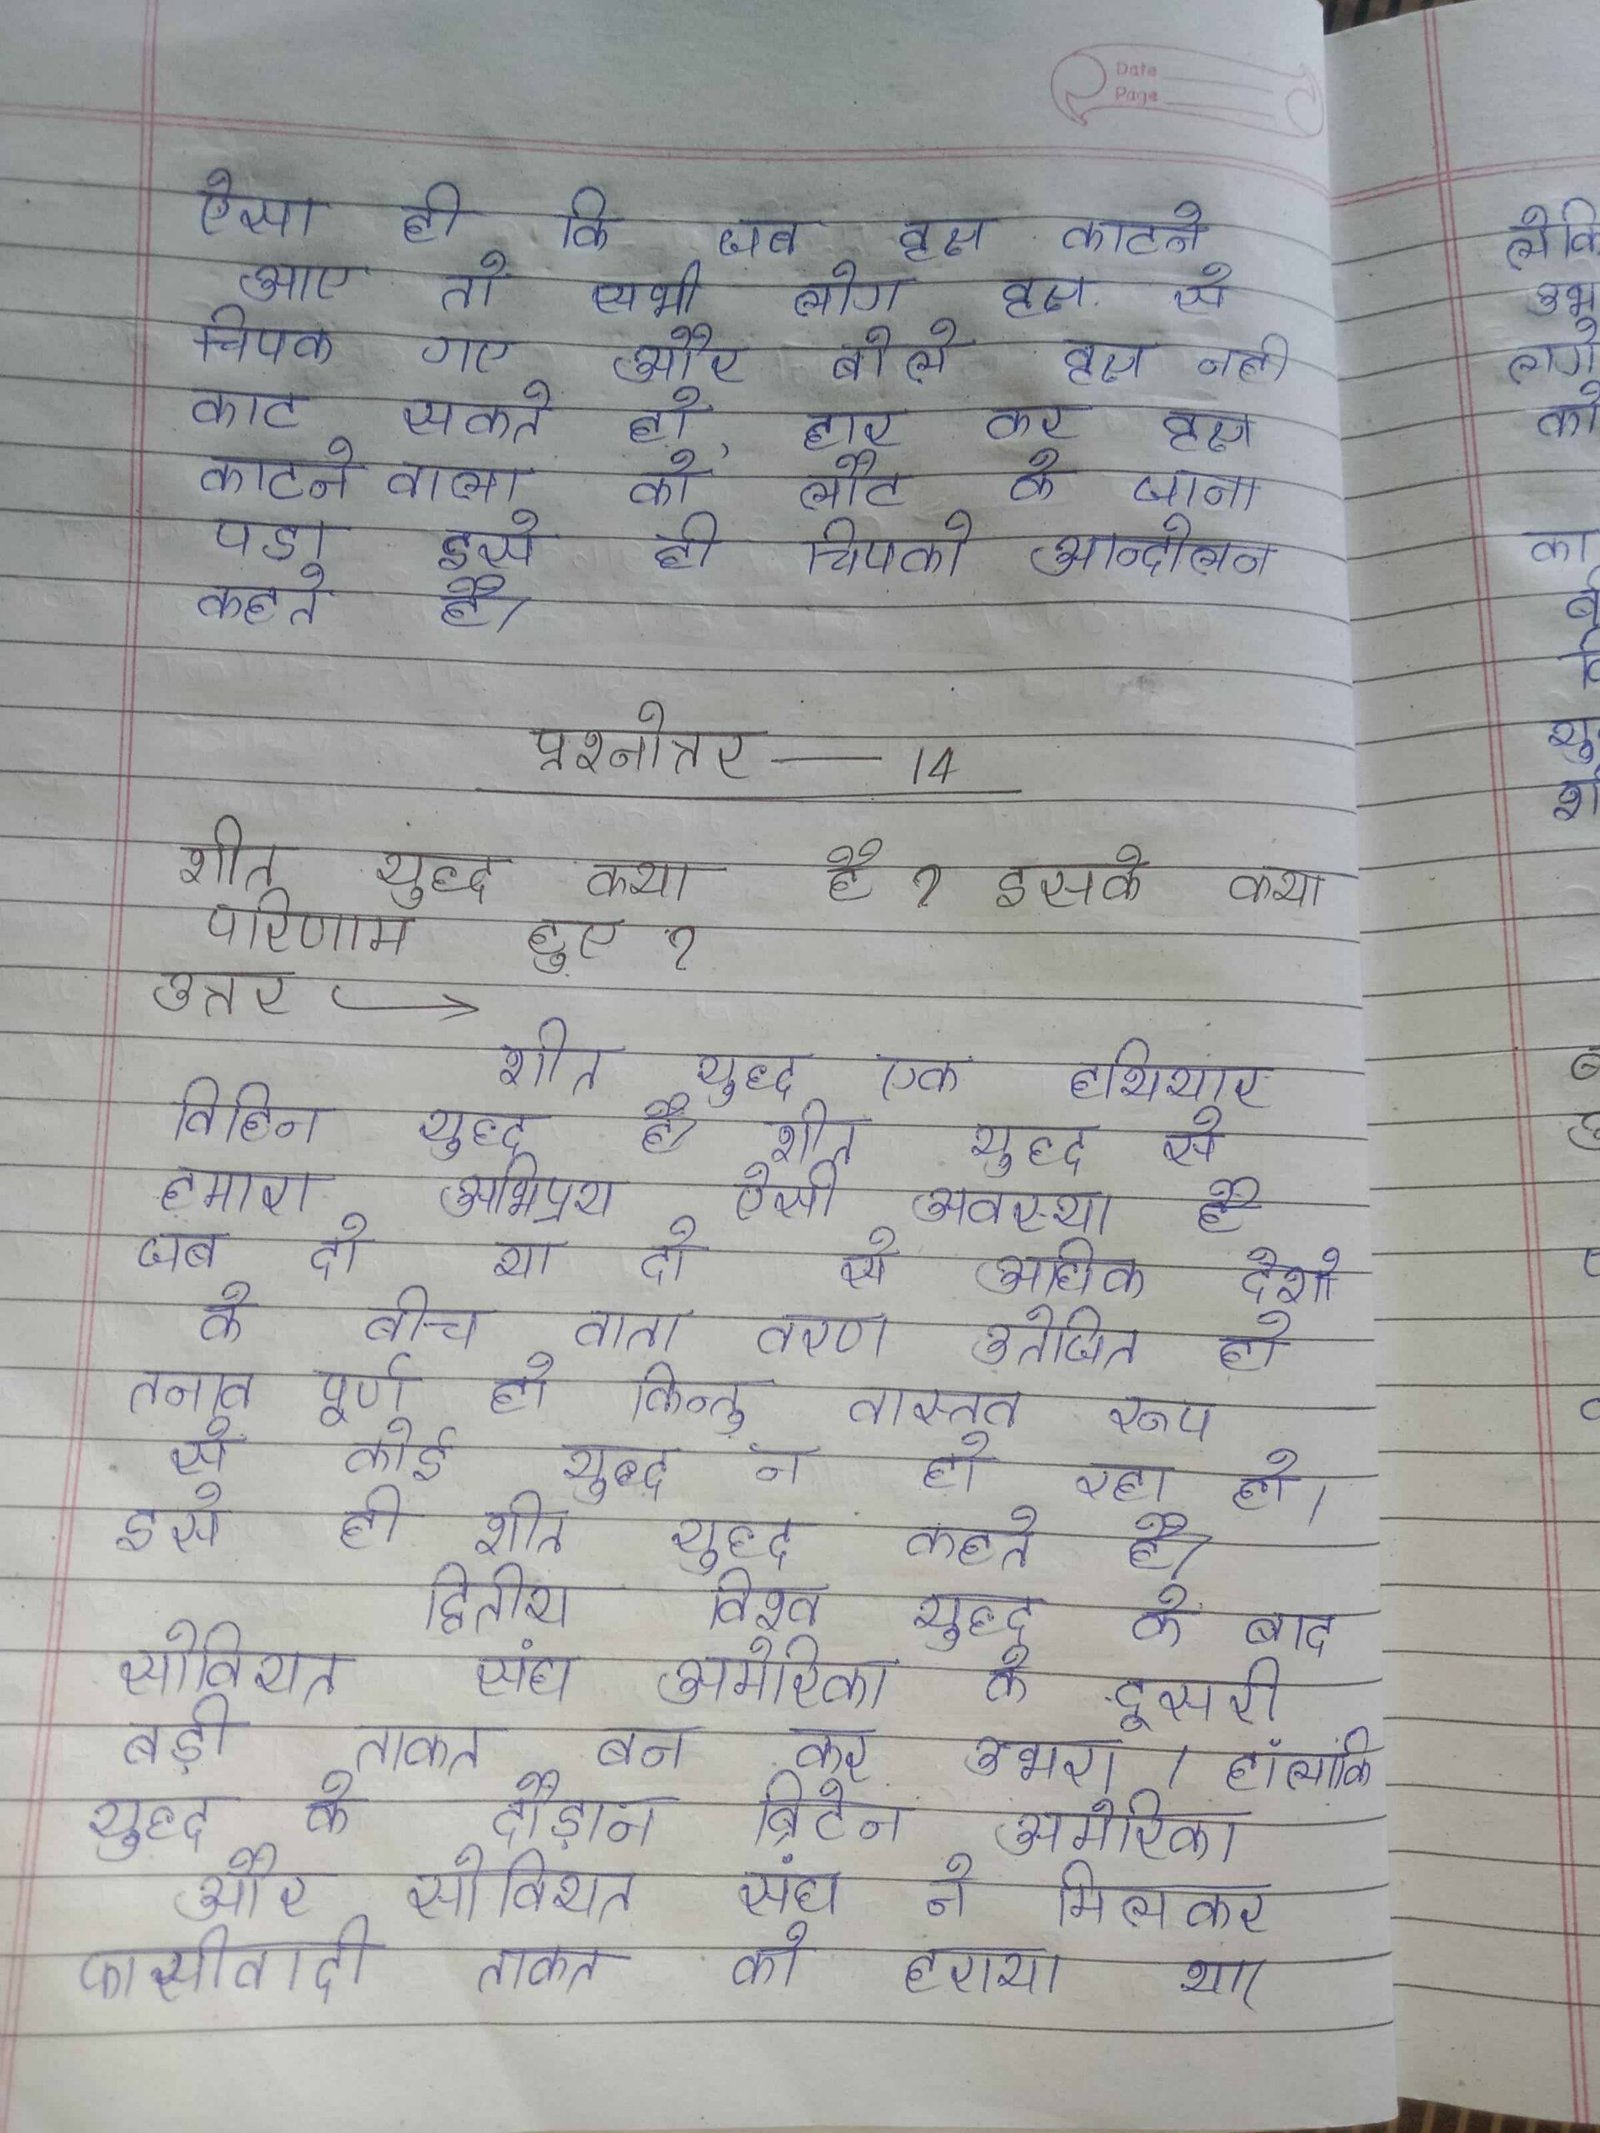 Date
Page
ऐसा ही कि जब वृक्ष काटने
आए तो सभी लोग वृक्ष से
चिपक गए और बोले वृक्ष नही
काट सकते हो, हार कर वृक्ष
काटने वाला को लौट के जाना
पडा इसे ही चिपको आन्दोलन
कहते है।
प्रश्नोतर — 14
शीत युद्ध कया है ? इसके कया
परिणाम हुए ?
उतर →
शीत युद्ध एक हथियार
विहिन युद्ध है। शीत युद्ध से
हमारा अभिप्रय ऐसी अवस्था है
जब दो या दो से अधिक देशो
के बीच वाता वरण उतेजित हो
तनाव पूर्ण हो किन्तु वास्तव रूप
से कोई युद्ध न हो रहा हो।
इसे ही शीत युद्ध कहते है।
द्वितीय विश्व युद्ध के बाद
सोवियत संघ अमेरिका के दूसरी
बड़ी ताकत बन कर उभरा। हांलांकि
युद्ध के दौड़ान ब्रिटेन अमेरिका
और सोवियत संघ ने मिलकर
फासीवादी ताकत को हराया था।
का